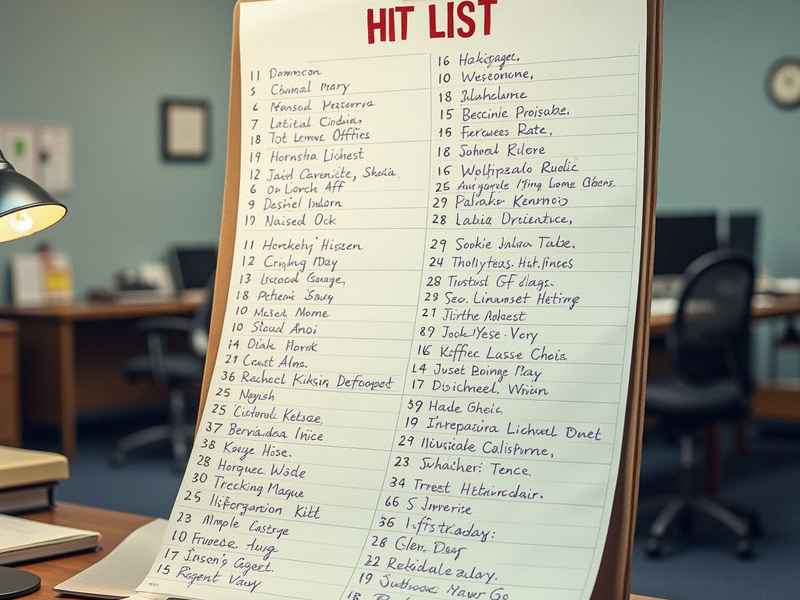 HIT LIST
11 Dommcon
5 Chomal Mary
6 Mensod Mezorria
7 Latitial Cindias
18 Tot Lenwe Offties
19 Hornsha Lichest
12 Jaid Carenicte, Skedia
6 On Lorch Aff
9 Destiel Indorn
17 Naised Ock
11 Horckehy' Hiszen
12 Crighug May
13 Issood Gauage,
18 Petheni Saug
10 Mased Mome
10 Sload Anoi
14 Oiak Horik
21 Ceast Alns.
36 Racheel Kiksin Defoopeet
25 Noyish
25 Cistorol Ketsoe
37 Berviadea Inice
38 Kouge Hise.
28 Horquec Wade
30 Trecking Mague
25 Ilifforgantion Kitt
23 Mmple Castrye
10 Frueoce Aurg
17 Inseon's Ggeet.
15 Regent Vauy
16 Hakipager.
10 Wesconone,
18 Blubclume
15 Beccinie Proisabe.
15 Fercuees Rate,
18 Sohool Rilore
16 Wolfipzalo Rudic
25 Auigarde /Ting Lome Gbers.
29 Palrako Kenrnois
28 Labia Drecientce,
29 Sookie Jalna Tube.
24 Thollyteas. Hat. fices
28 Tiustud GF dlags.
29 Seo. Linumset Hetirig
21 Jlirthe Aolaest
89 Jock/Yese - Very
16 Keffec Lasse Chois
14 Juset Boinge May
17 Disicheel. Wiviun
39 Hade Gheic.
19 Inrepaurina Lichuel Duet
29 Iliusicale Calisforme,
23 Suhacheri Tence.
34 Trrest Heterivedair.
66 S Jnverise
36 Liffs traday:
28 Glen Deef
22 Retidale zulay.
19 Suthose Maver Go